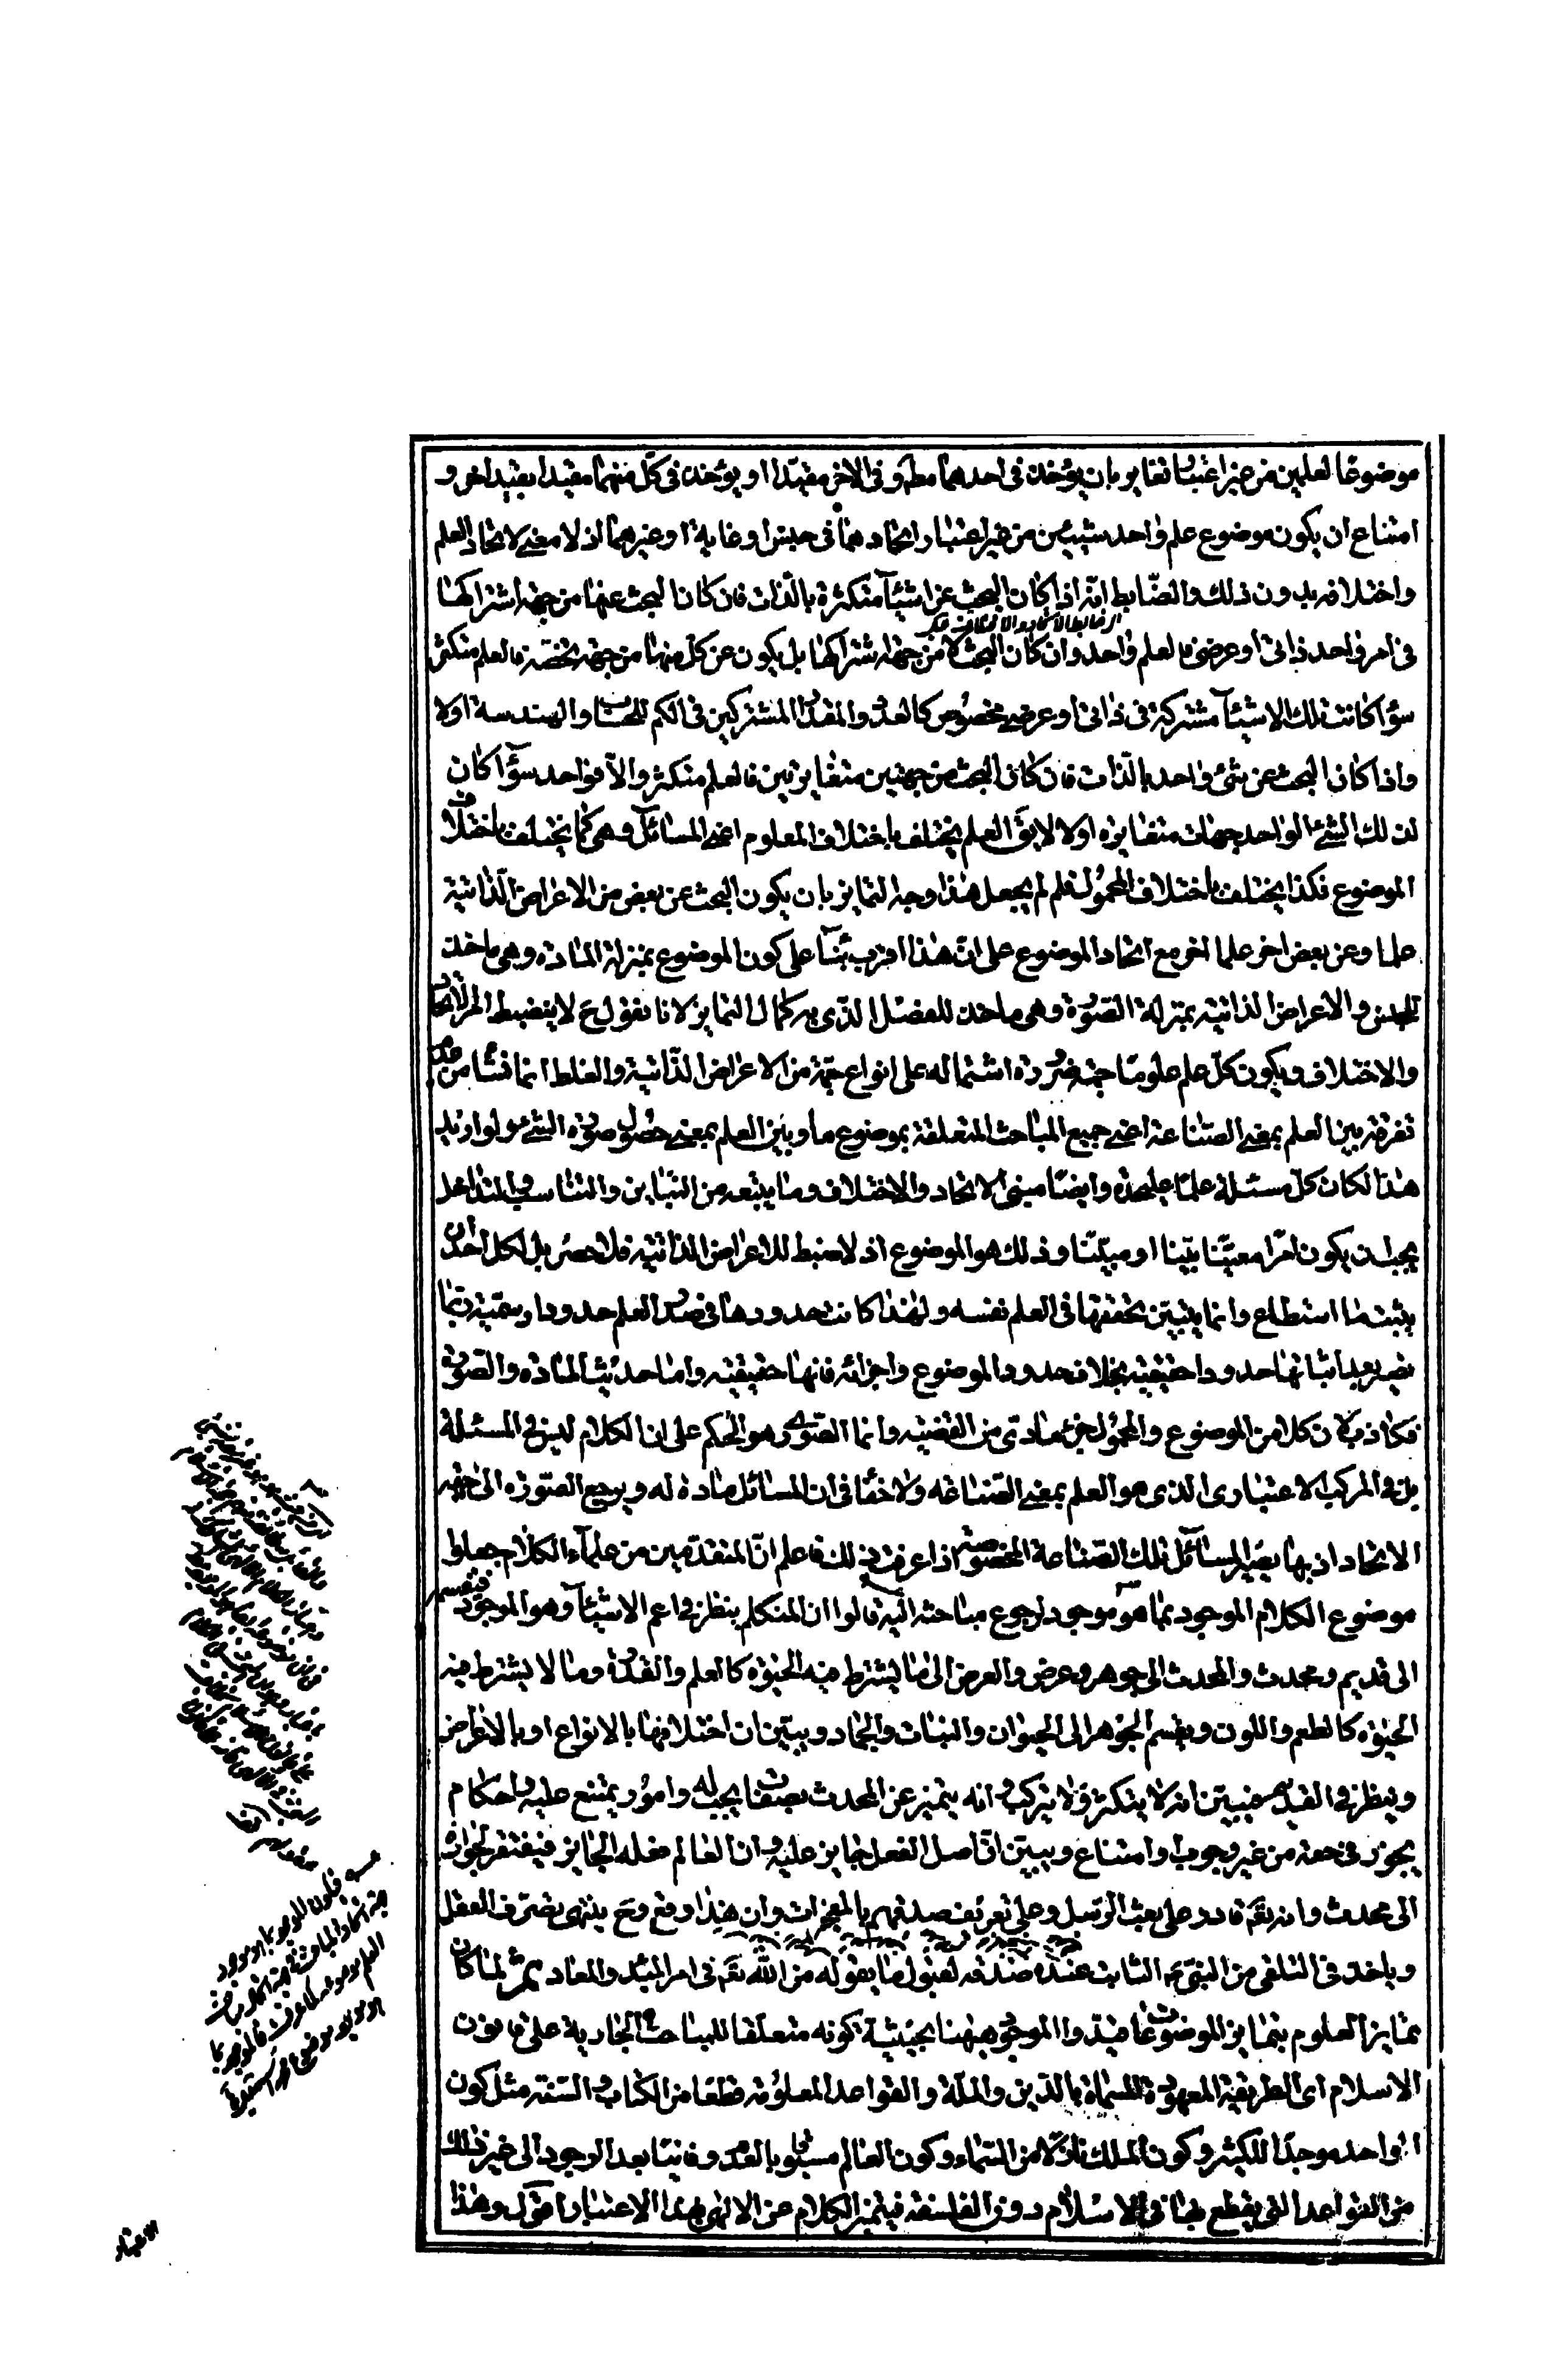 موضوعا لعلمين من غير اعتبار تغاير بان يؤخذ فى احدهما مطم وفى الاخر مقيدا او يؤخذ فى كل منهما مقيدا بقيد اخر و
امتناع ان يكون موضوع علم واحد شيئين من غير اعتبار اتحادهما فى جنس او غاية او غيرهما اذ لا معنى لاتحاد العلم
واختلافه بدون ذلك والضابط انه اذا كان البحث عن اشياء متكثرة بالذات فان كان البحث عنها من جهة اشتراكها
فى امر واحد ذاتى او عرضى فالعلم واحد وان كان البحث لا من جهة اشتراكها بل يكون عن كل منها من جهة تخصه فالعلم متكثر
سواء كانت تلك الاشياء مشتركة فى ذاتى او عرضى مخصوص كالعدد والمقدار المشتركين فى الكم للحساب والهندسة اولا
واذا كان البحث عن شئ واحد بالذات فان كان البحث من جهتين متغايرتين فالعلم متكثر والا فواحد سواء كان
لذلك الشئ الواحد جهات متغايرة اولا لا يق العلم يختلف باختلاف المعلوم اعنى المسائل وهى كما يختلف باختلاف
الموضوع فكذا يختلف باختلاف المحمول فلم لم يجعل هذا وجه التمايز بان يكون البحث عن بعض من الاعراض الذاتية
علما وعن بعض اخر علما اخر مع اتحاد الموضوع على ان هذا اقرب بناء على كون الموضوع بمنزلة المادة وهى ماخذ
للجنس والاعراض الذاتية بمنزلة الصورة وهى ماخذ للفصل الذى به كمال التمايز لانا نقول ح لا ينضبط امر الاتحاد
والاختلاف ويكون كل علم علوما جمة ضرورة اشتماله على انواع جمة من الاعراض الذاتية والغلط انما نشأ من عدم
تفرقة بين العلم بمعنى الصناعة اعنى جميع المباحث المتعلقة بموضوع ما وبين العلم بمعنى حصول صورة الشئ ولو اريد
هذا لكان كل مسئلة علما عليحدة وايضا مبنى الاتحاد والاختلاف وما يتبعه من التباين والتناسب والتداخل
يجب ان يكون امرا معينا بينا او مبينا وذلك هو الموضوع اذ لا ضبط للاعراض الذاتية فلا حصر بل لكل احد ان
يثبت ما استطاع وانما يتبين تحققها فى العلم نفسه ولهذا كانت حدودها فى صدر العلم حدودا رسمية ربما
تصير بعد اثباتها حدودا حقيقية بخلاف حدود الموضوع واجزائه فانها حقيقية واما حديث المادة والصورة
فكاذب لان كلا من الموضوع والمحمول جزء مادى من القضية وانما الصورى وهو الحكم على ان الكلام ليس فى المسئلة
بل فى المركب الاعتبارى الذى هو العلم بمعنى الصناعة ولا خفاء فى ان المسائل مادة له ويرجع الصورة الى جهة
الاتحاد اذ بها يصير المسائل تلك الصناعة المخصوصة اذا عرفت ذلك فاعلم ان المتقدمين من علماء الكلام جعلوا
موضوع الكلام الموجود بما هو موجود لرجوع مباحثه اليه قالوا ان المتكلم ينظر فى اعم الاشياء وهو الموجود فيقسم
الى قديم ومحدث والمحدث الى جوهر وعرض والعرض الى ما يشترط فيه الحيوة كالعلم والقدرة وما لا يشترط فيه
الحيوة كالطعم واللون ويقسم الجوهر الى الحيوان والنبات والجماد ويبين ان اختلافها بالانواع او بالاعراض
وينظر فى القديم فيبين انه لا يتكثر ولا يتركب وانه يتميز عن المحدث بصفات يجب له وامور يمتنع عليه واحكام
يجوز فى حقه من غير وجوب وامتناع ويبين ان اصل الفعل جايز عليه وان العالم فعله الجايز فيفتقر لجوازه
الى محدث وانه تعم قادر على بعث الرسل وعلى تعريف صدقهم بالمعجزات وان هذا وقع وح ينتهى تصرف العقل
وياخذ فى التلقى من النبى ع الثابت عنده صدقه لقبول ما يقوله من الله تعم فى امر المبدء والمعاد ثم لما كان
تمايز العلوم بتمايز الموضوعات قيدوا الموجود ههنا بحيثية كونه متعلقا للمباحث الجارية على قانون
الاسلام اى الطريقة المعهودة المسماة بالدين والملة والقواعد المعلومة قطعا من الكتاب والسنة مثل كون
الواحد موجدا للكثير وكون الملك نازلا من السماء وكون العالم مسبوقا بالعدم وفانيا بعد الوجود الى غير ذلك
من القواعد التى يقطع بها فى الاسلام دون الفلسفة فيتميز الكلام عن الالهى بهذا الاعتبار اقول وهذا
الاعتبار